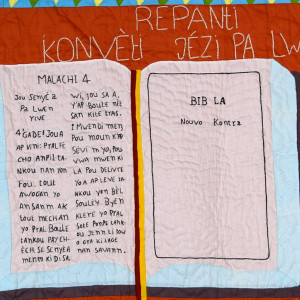 REPANTI
KONVÈTI JÉZI PA LW
MALACHI 4
JOU SENYÈ 2
PA LWEN
RIVE
4 GADE! JOU A
AP VINI: PRAL FÈ
CHO ANPIL TA
NKOU NAN YON
FOU. TOUT
AWOGAN YO
ANSANM AK
TOUT MECHAN
YO PRAL BOULE
TANKOU PAY CH
ÈCH. SE SENYÈ A
MENM KI DI SA.
WI, JOU SA A,
Y'AP BOULE NÈT
SAN KITE TRAS.
MWEN DI MEN
POU MOUN KI AP
SÈVI M YO, POU
VWA MWEN KI
LA POU DELIVRE
YO A AP LEVE TA
NKOU YON BÈL
SOULEY. BYEN
KLERE YO PRAL
SOTE PONPE TANK
OU JENN TI TOW
O OYA KI LAGE
NAN SAVANN.
BIB LA
Nouvo Kontra